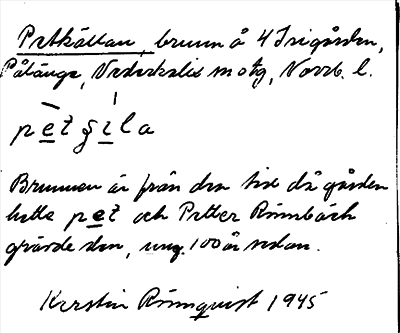 Petkällan, brunn å 4 Irigården,
Pålänge, Nederkalix m otg, Norrb. l.
pet şıla
Brunnen är från den tid då gården
hette pet och Petter Rönnbäck
grävde den, ung. 100 år sedan.
Kerstin Rönnqvist 1945